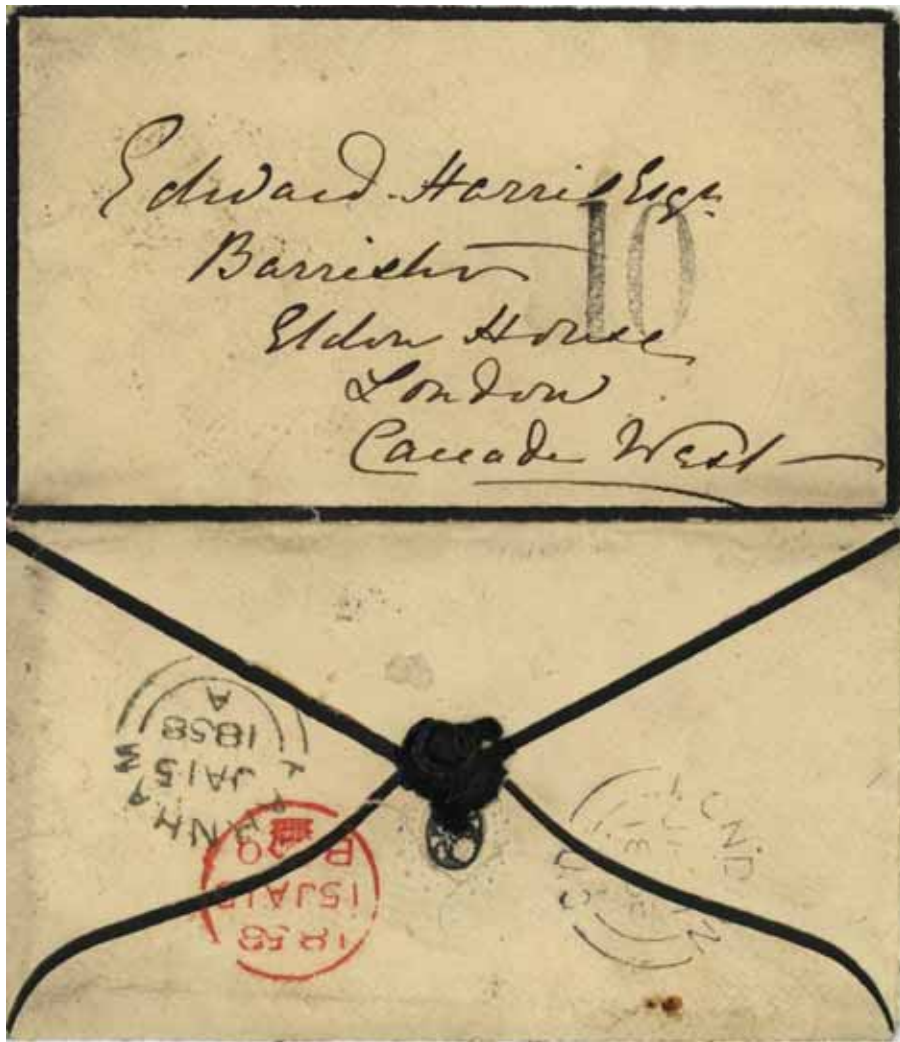 Edward Harris Esqr
10
Barrister
Eldon House
London
Canada West
FARNHAM
JA 15
1858
A
1858
15JA15
B